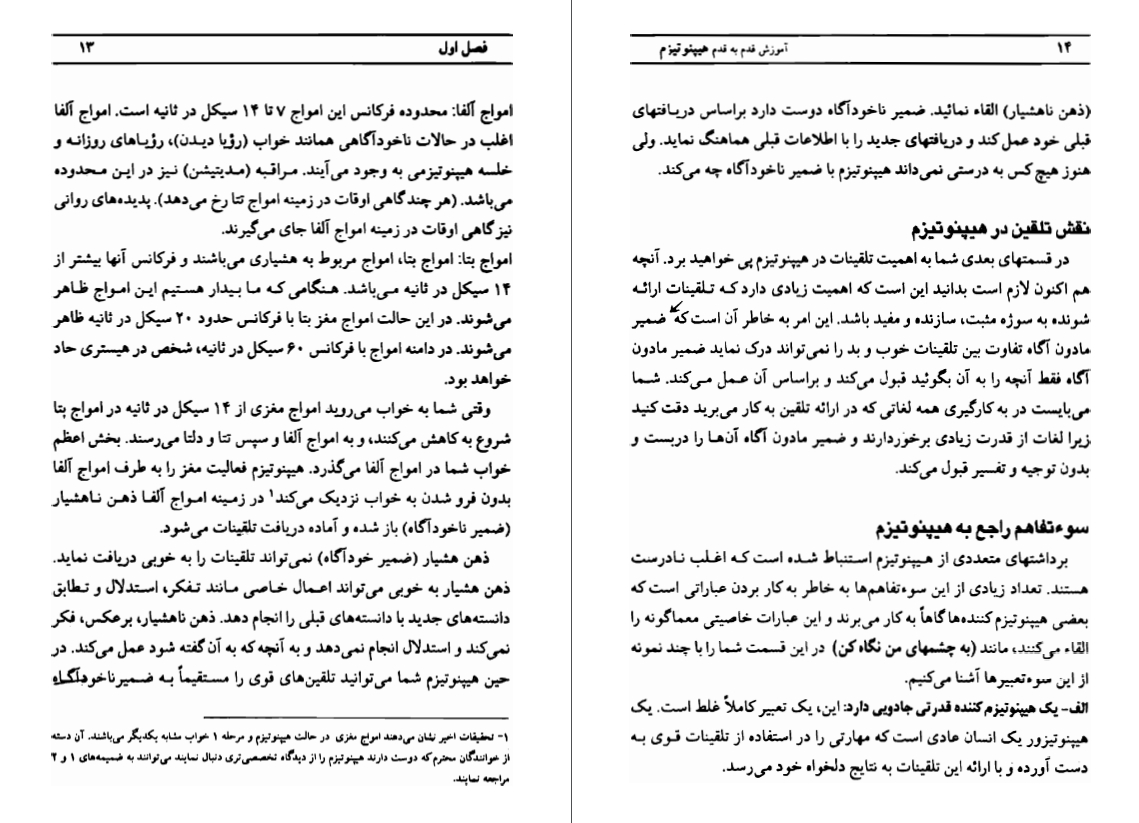 فصل اول ۱۳
امواج آلفا: محدوده فرکانس این امواج ۷ تا ۱۴ سیکل در ثانیه است. امواج آلفا
اغلب در حالات ناخودآگاهی همانند خواب (رؤیا دیدن)، رؤیاهای روزانه و
خلسه هیپنوتیزمی به وجود می‌آیند. مراقبه (مدیتیشن) نیز در این محدوده
می‌باشد. (هر چند گاهی اوقات در زمینه امواج تتا رخ می‌دهد). پدیده‌های روانی
نیز گاهی اوقات در زمینه امواج آلفا جای می‌گیرند.
امواج بتا: امواج بتا، امواج مربوط به هشیاری می‌باشند و فرکانس آنها بیشتر از
۱۴ سیکل در ثانیه می‌باشد. هنگامی که ما بیدار هستیم این امواج ظاهر
می‌شوند. در این حالت امواج مغز بتا با فرکانس حدود ۲۰ سیکل در ثانیه ظاهر
می‌شوند. در دامنه امواج با فرکانس ۶۰ سیکل در ثانیه، شخص در هیستری حاد
خواهد بود.
وقتی شما به خواب می‌روید امواج مغزی از ۱۴ سیکل در ثانیه در امواج بتا
شروع به کاهش می‌کنند، و به امواج آلفا و سپس تتا و دلتا می‌رسند. بخش اعظم
خواب شما در امواج آلفا می‌گذرد. هیپنوتیزم فعالیت مغز را به طرف امواج آلفا
بدون فرو شدن به خواب نزدیک می‌کند۱ در زمینه امواج آلفا ذهن ناهشیار
(ضمیر ناخودآگاه) باز شده و آماده دریافت تلقینات می‌شود.
ذهن هشیار (ضمیر خودآگاه) نمی‌تواند تلقینات را به خوبی دریافت نماید.
ذهن هشیار به خوبی می‌تواند اعمال خاصی مانند تفکر، استدلال و تطابق
دانسته‌های جدید با دانسته‌های قبلی را انجام دهد. ذهن ناهشیار، برعکس، فکر
نمی‌کند و استدلال انجام نمی‌دهد و به آنچه که به آن گفته شود عمل می‌کند. در
حین هیپنوتیزم شما می‌توانید تلقین‌های قوی را مستقیماً به ضمیر ناخودآگاه
۱- تحقیقات اخیر نشان می‌دهند امواج مغزی در حالت هیپنوتیزم و مرحله ۱ خواب مشابه یکدیگر می‌باشند. آن دسته
از خوانندگان محترم که دوست دارند هیپنوتیزم را از دیدگاه تخصصی‌تری دنبال نمایند می‌توانند به ضمیمه‌های ۱ و ۲
مراجعه نمایند.
۱۴ آموزش قدم به قدم هیپنوتیزم
(ذهن ناهشیار) القاء نمائید. ضمیر ناخودآگاه دوست دارد براساس دریافتهای
قبلی خود عمل کند و دریافتهای جدید را با اطلاعات قبلی هماهنگ نماید. ولی
هنوز هیچ کس به درستی نمی‌داند هیپنوتیزم با ضمیر ناخودآگاه چه می‌کند.
نقش تلقین در هیپنوتیزم
در قسمتهای بعدی شما به اهمیت تلقینات در هیپنوتیزم پی خواهید برد. آنچه
هم اکنون لازم است بدانید این است که اهمیت زیادی دارد که تلقینات ارائه
شونده به سوژه مثبت، سازنده و مفید باشد. این امر به خاطر آن است که ضمیر
مادون آگاه تفاوت بین تلقینات خوب و بد را نمی‌تواند درک نماید ضمیر مادون
آگاه فقط آنچه را به آن بگوئید قبول می‌کند و براساس آن عمل می‌کند. شما
می‌بایست در به کارگیری همه لغاتی که در ارائه تلقین به کار می‌برید دقت کنید
زیرا لغات از قدرت زیادی برخوردارند و ضمیر مادون آگاه آن‌ها را دربست و
بدون توجیه و تفسیر قبول می‌کند.
سوءتفاهم راجع به هیپنوتیزم
برداشتهای متعددی از هیپنوتیزم استنباط شده است که اغلب نادرست
هستند. تعداد زیادی از این سوءتفاهم‌ها به خاطر به کار بردن عباراتی است که
بعضی هیپنوتیزم کننده‌ها گاهاً به کار می‌برند و این عبارات خاصیتی معماگونه را
القاء می‌کنند، مانند (به چشمهای من نگاه کن) در این قسمت شما را با چند نمونه
از این سوءتعبیرها آشنا می‌کنیم.
الف- یک هیپنوتیزم کننده قدرتی جادویی دارد: این، یک تعبیر کاملاً غلط است. یک
هیپنوتیزور یک انسان عادی است که مهارتی را در استفاده از تلقینات قوی به
دست آورده و با ارائه این تلقینات به نتایج دلخواه خود می‌رسد.